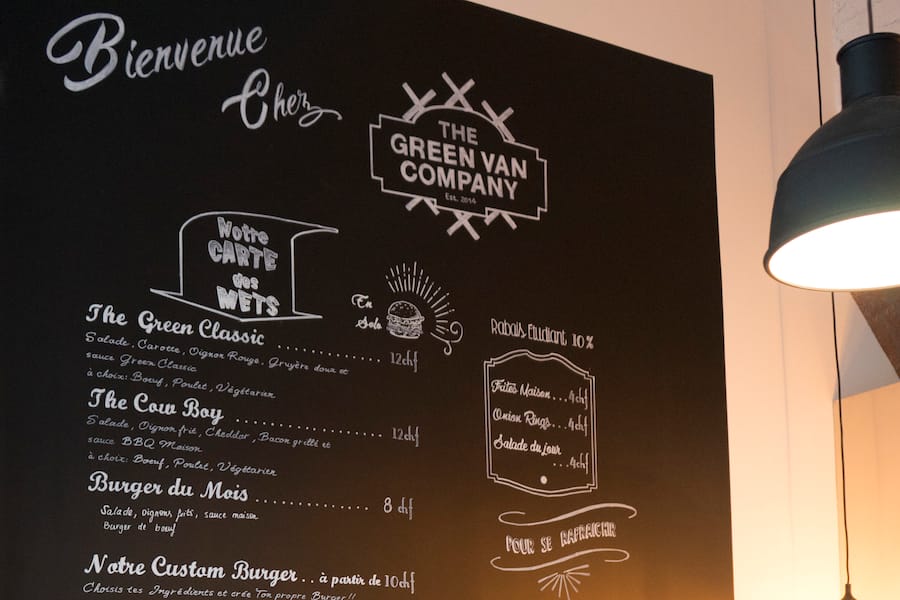 Bienvenue
Chez
THE
GREEN VAN
COMPANY
Est. 2014
Notre
CARTE
des
METS
En
Solo
The Green Classic .............. 12chf
Salade, Carotte, Oignon Rouge, Gruyère doux et
sauce Green Classic
à choix: Boeuf, Poulet, Végétarien
The Cow Boy .................. 12chf
Salade, Oignon frit, Cheddar, Bacon grillé et
sauce BBQ Maison
à choix: Boeuf, Poulet, Végétarien
Burger du Mois .............. 8 chf
Salade, oignons frits, sauce maison
Burger de boeuf
Notre Custom Burger .. à partir de 10chf
Choisis tes Ingrédients et crée Ton propre Burger!!
Rabais Etudiant 10%
Frites Maison ... 4chf
Onion Rings... 4chf
Salade du jour
... 4chf
POUR SE RAFRAICHIR